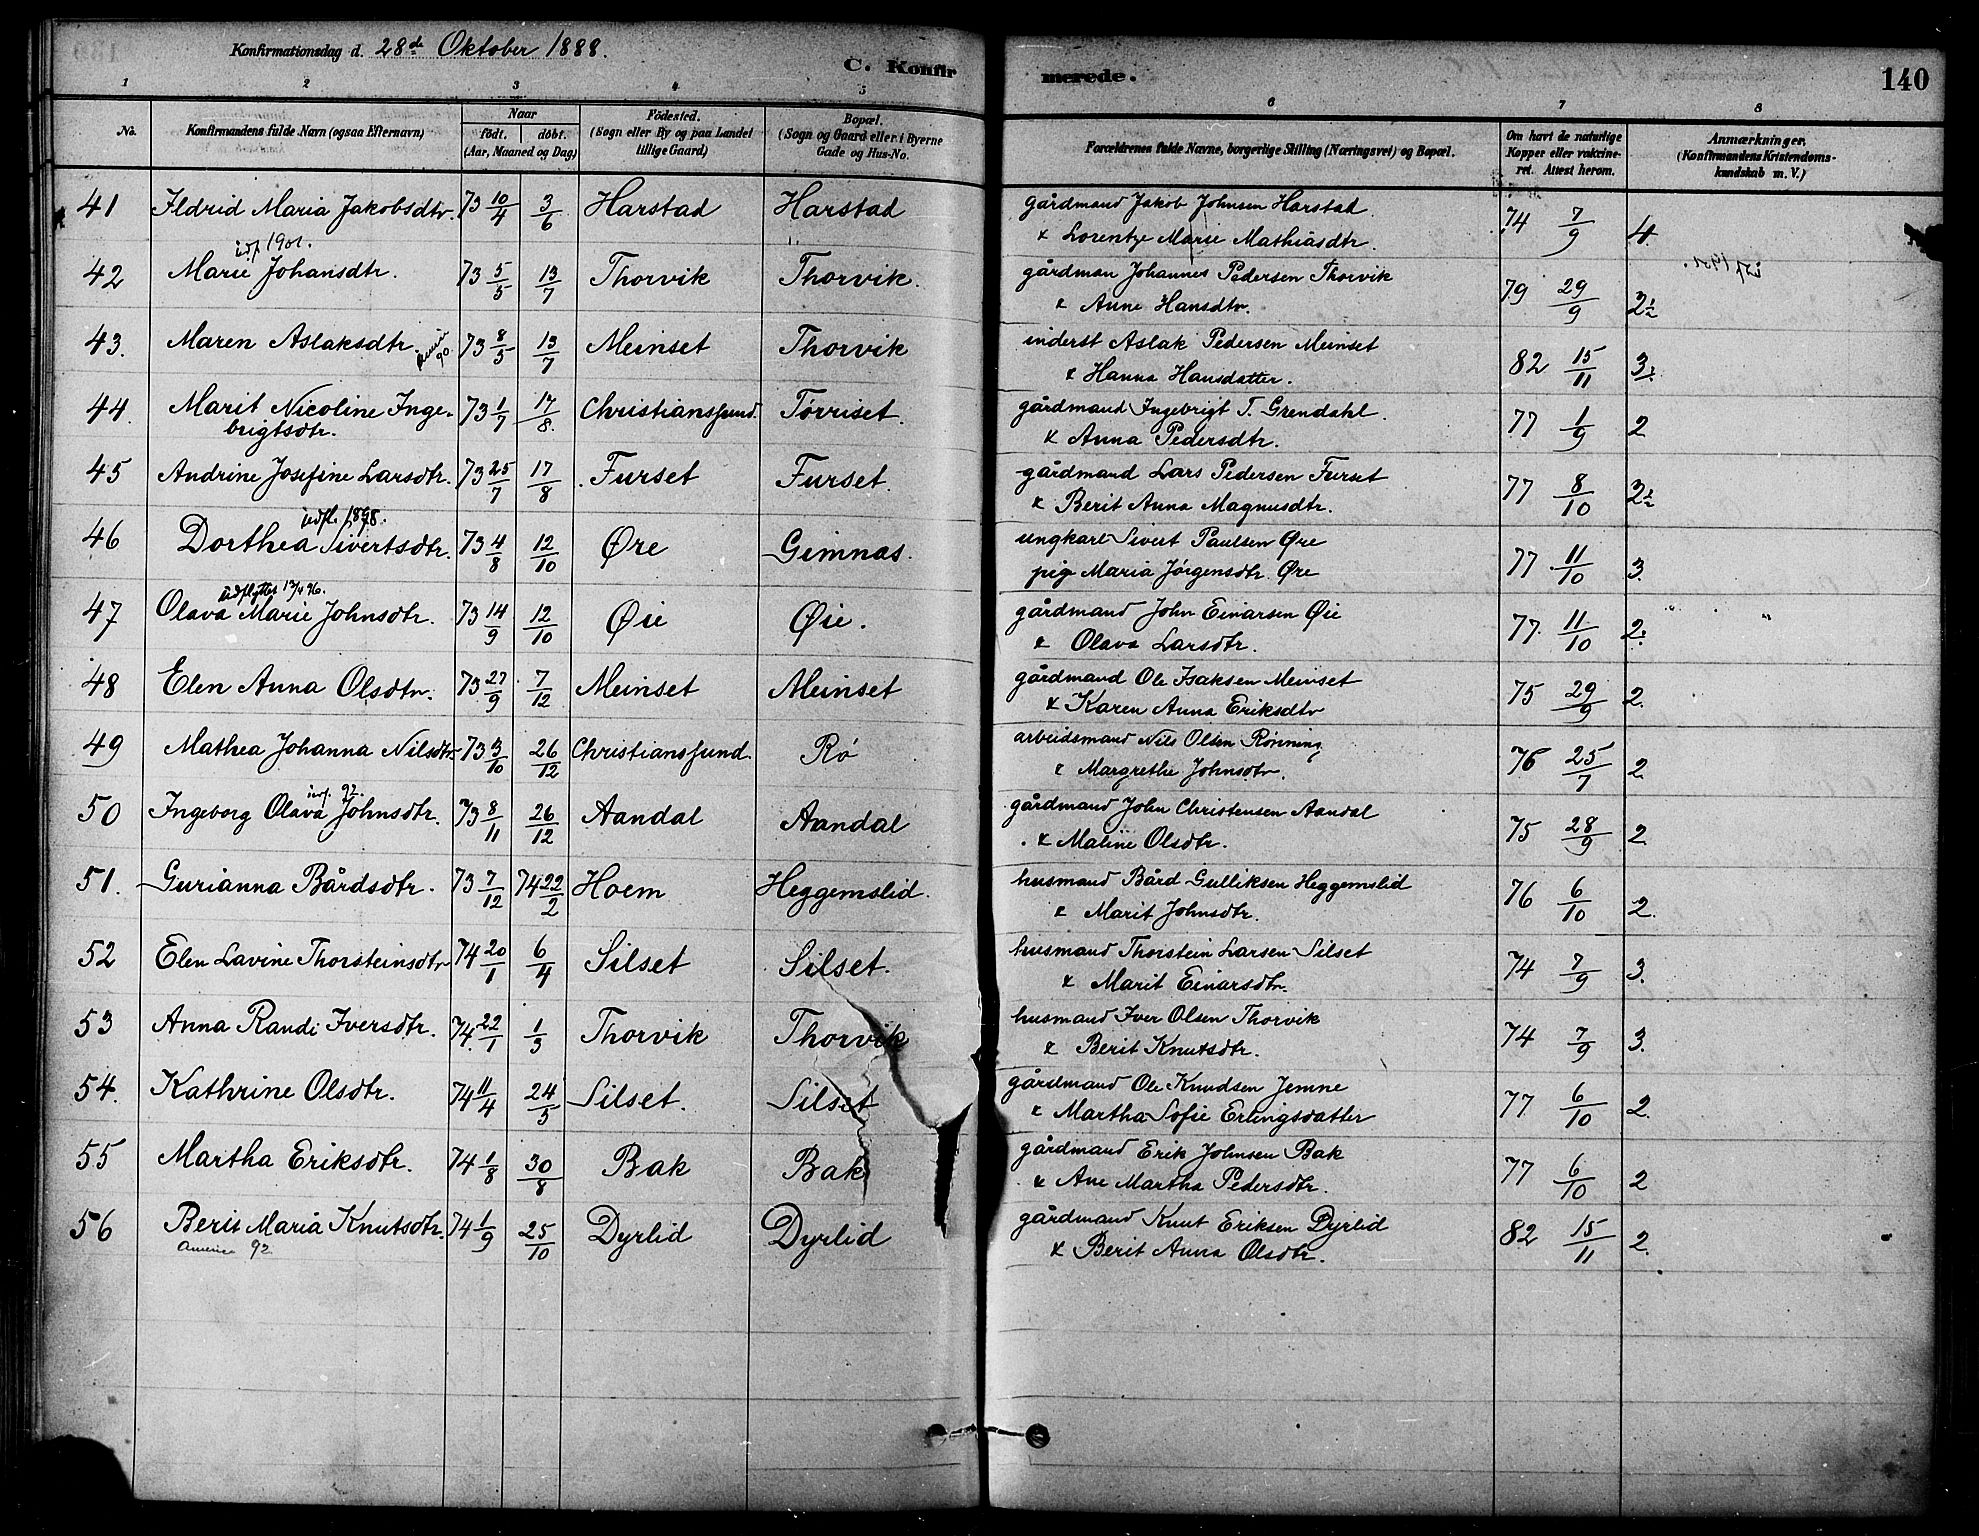 Konfirmationsdag d. 28de Oktober 1888.
C. Konfirmerede. 140
1 2 3 4 5 6 7 8
No. Konfirmandens fulde Navn (ogsaa Efternavn) Naar født. døbt. (Aar, Maaned og Dag) Fødested. (Sogn eller By og paa Landet tillige Gaard) Bopæl. (Sogn og Gaard eller i Byerne Gade og Hus-No. Forældrenes fulde Navne, borgerlige Stilling (Næringsvei) og Bopæl. Om havt de naturlige Kopper eller vakcineret. Attest herom. Anmærkninger. (Konfirmandens Kristendomskundskab m. V.)
41 Ildrid Maria Jakobsdtr. 73 10/4 3/6 Harstad Harstad gårdmand Jakob Johnsen Harstad 74 7/9 4
& Lorentze Marie Mathiasdtr.
udf 1901.
42 Marie Johansdtr. 73 5/5 13/7 Thorvik Thorvik. gårdman Johannes Pedersen Thorvik 79 29/9 2½ udf 1901.
& Anne Hansdtr.
43. Maren Aslaksdtr 90 73 8/5 13/7 Meinset Thorvik inderst Aslak Pedersen Meinset 82 15/11 3
& Hanna Hansdatter.
44. Marit Nicoline Inge- 73 1/7 17/8. Christianssund. Tørriset. gårdmand Ingebrigt T. Grendahl. 77 1/9 2
brigtsdtr. & Anna Pedersdtr.
45 Andrine Josefine Larsdtr. 73 25/7 17/8 Furset Furset. gårdmand Lars Pedersen Furset 77 8/10 2½
& Berit Anna Magnusdtr.
udfl. 1898.
46 Dorthea Sivertsdtr. 73 4/8 12/10 Øre Gimnas. ungkarl Sivert Paulsen Øre 77 11/10 3.
pige Maria Jørgensdtr. Øre
udflyttet 13/4 96.
47 Olava Marie Johnsdtr. 73 14/9 12/10 Øie Øie. gårdmand John Einarsen Øie 77. 11/10 2.
& Olava Larsdtr.
48 Elen Anna Olsdtr. 73 27/9 7/12 Meinset Meinset gårdmand Ole Isaksen Meinset 75 29/9 2.
& Karen Anna Eriksdtr
49 Mathea Johanna Nilsdtr. 73 3/10 26/12 Christianssund. Rø arbeidsmand Nils Olsen Rønning 76 25/7 2.
& Margrethe Johnsdtr.
udf. 92.
50 Ingeborg Olava Johnsdtr. 73 8/11 26/12 Aandal Aandal gårdmand John Christensen Aandal 75 28/9 2
& Maline Olsdtr.
51. Gurianna Bårdsdtr. 73 7/12 74 22/2 Hoem Heggemslid. husmand Bård Gulliksen Heggemslid 76 6/10 2.
& Marit Johnsdtr.
52 Elen Lavine Thorsteinsdtr 74 20/1 6/4 Silset Silset. husmand Thorstein Larsen Silset 74 7/9 3.
& Marit Einarsdtr.
53 Anna Randi Iversdtr. 74. 22/1 1/3 Thorvik Thorvik husmand Iver Olsen Thorvik 74 7/9 3.
& Berit Knutsdtr.
54. Kathrine Olsdtr. 74 11/4 24/5 Silset. Silset gårdmand Ole Knudsen Jemne 77 6/10 2.
& Martha Sofie Erlingsdatter
55 Martha Eriksdtr. 74 1/8 30/8 Bak Bak gårdmand Erik Johnsen Bak 77 6/10 2
& Ane Martha Pedersdtr.
56 Berit Maria Knutsdtr. 74 1/9 25/10 Dyrlid Dyrlid gårdmand Knut Eriksen Dyrlid 82 15/11 2.
America 92 & Berit Anna Olsdtr.